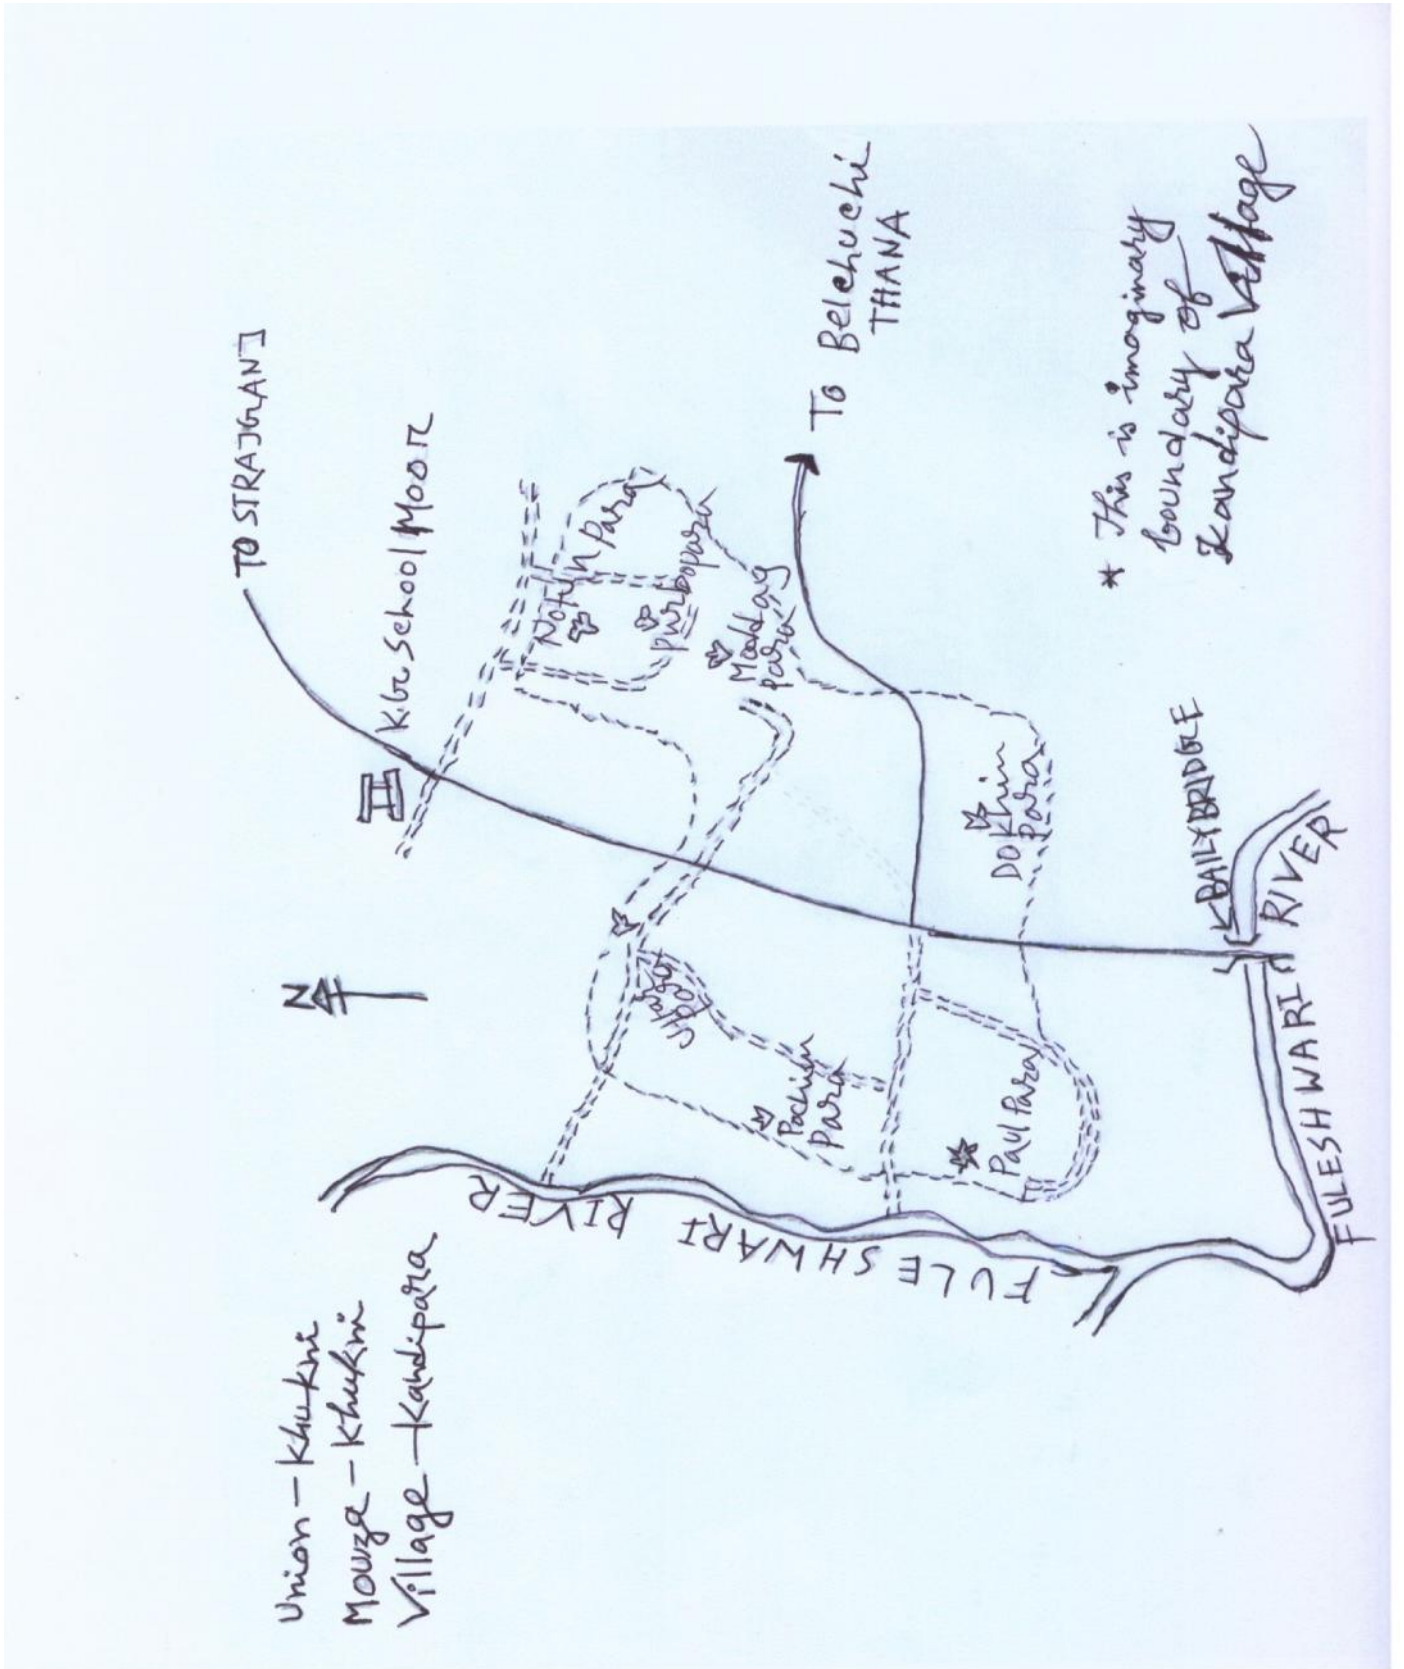 Union - Khukni
Mouza - Khukni
Village - Kandipara
N
TO SIRAJGANJ
K.G. School Moor
Notun Para
Purbopara
Para
To Belchuchi
THANA
Pochim
Para
Paul Para
Dokhin
Para
FULESHWARI RIVER
BAILYBRIDGE
FULESHWARI RIVER
* This is imaginary
boundary of
Kandipara Village